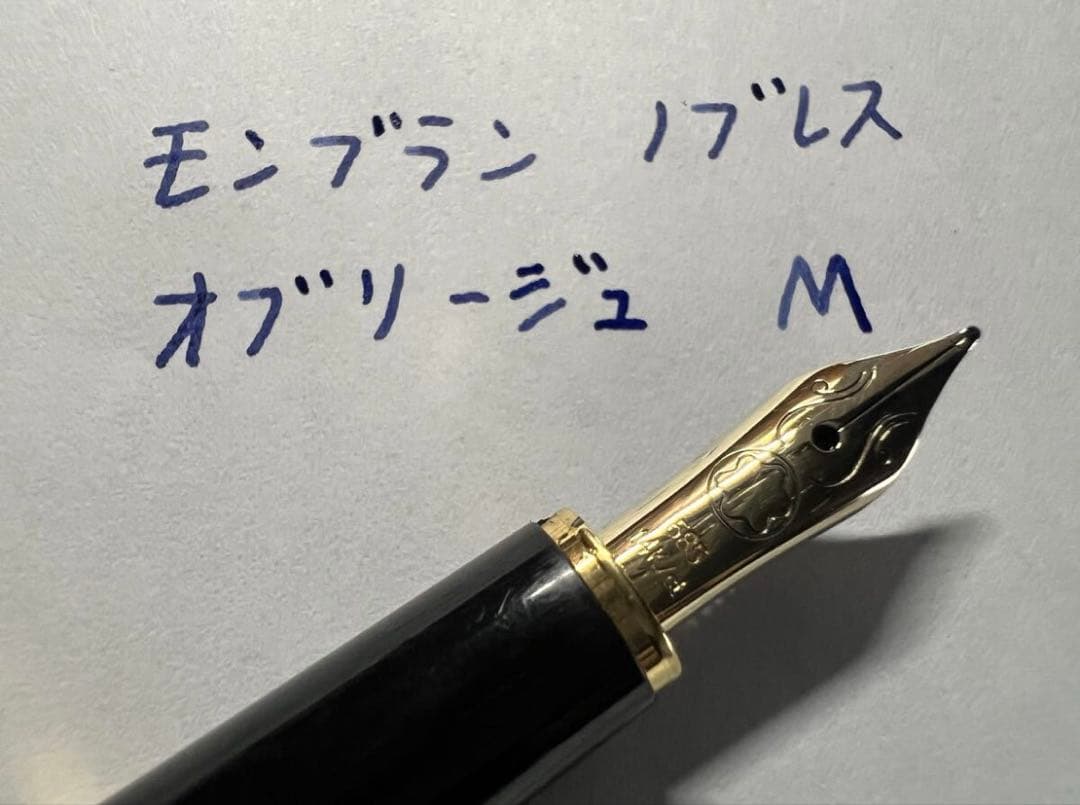 モンブラン ノブレス
オブリージュ M
585
14K